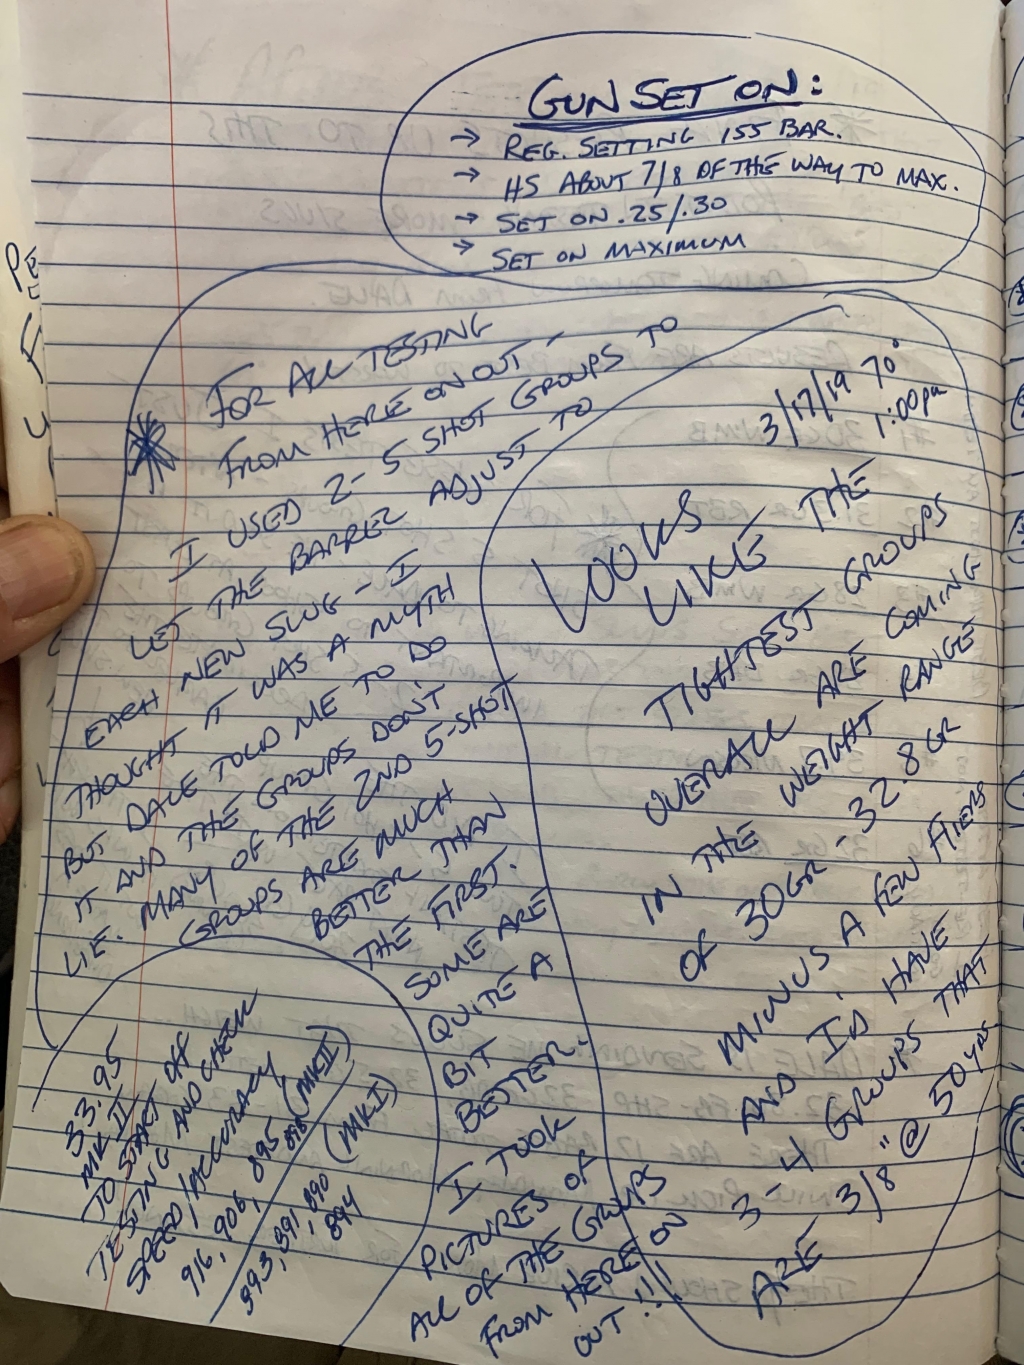 GUN SET ON:
→ REG. SETTING 155 BAR.
→ HS ABOUT 7/8 OF THE WAY TO MAX.
→ SET ON .25/.30
→ SET ON MAXIMUM
FOR ALL TESTING
FROM HERE ON OUT -
I USED 2-5 SHOT GROUPS TO
LET THE BARREL ADJUST TO
EACH NEW SLUG - I
THOUGHT IT WAS A MYTH
BUT DALE TOLD ME TO DO
IT AND THE GROUPS DON'T
LIE. MANY OF THE 2ND 5-SHOT
GROUPS ARE MUCH
BETTER THAN
THE FIRST.
SOME ARE
QUITE A
BIT
BETTER.
I TOOK
PICTURES OF
ALL OF THE GROUPS
FROM HERE ON
OUT!!!
3/17/19 70°
1:00pm
LOOKS
LIKE THE
TIGHTEST GROUPS
OVERALL ARE COMING
IN THE WEIGHT RANGE
OF 30GR - 32.8GR
MINUS A FEW FLIERS
AND I'D HAVE
3-4 GROUPS THAT
ARE 3/8" @ 50 YDS
33.95
MK II
TO START OFF
TESTING AND CHECK
SPEED/ACCURACY
916, 906, 895, 898 (MKII)
893, 891, 890 (MKI)
894